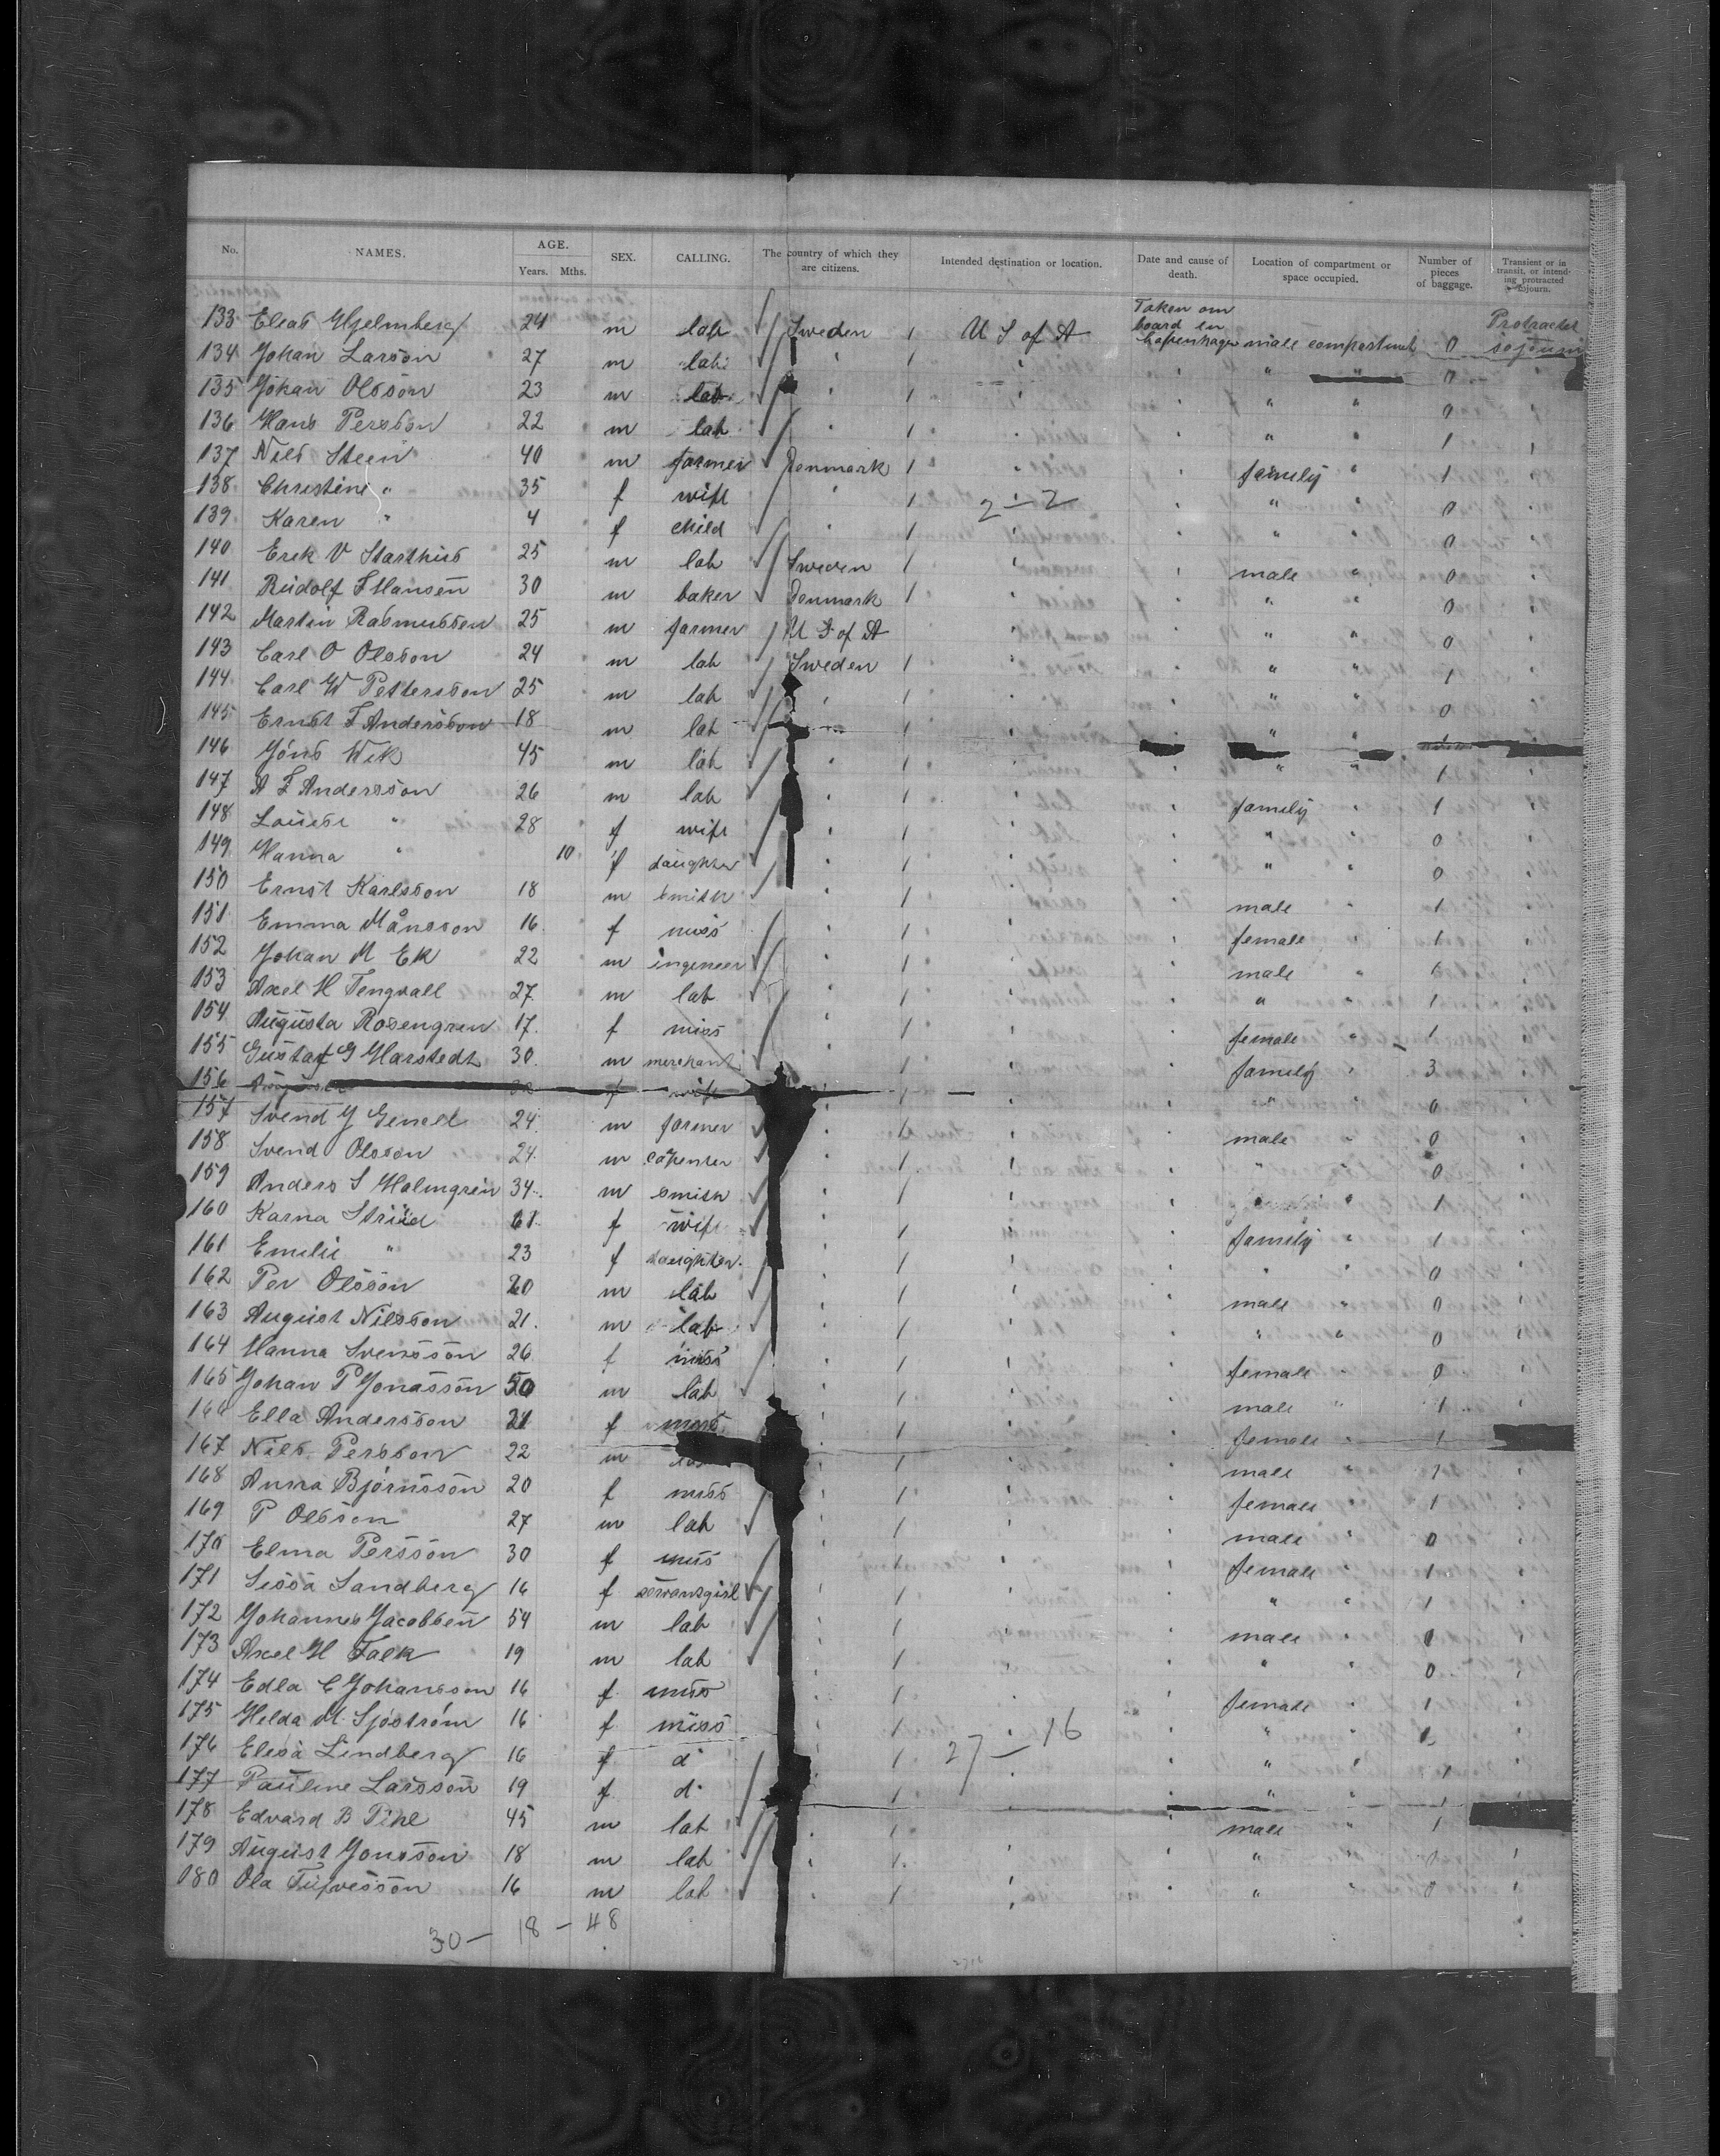 No. NAMES. AGE. Years. Mths. SEX. CALLING. The country of which they are citizens. Intended destination or location. Date and cause of death. Location of compartment or space occupied. Number of pieces of baggage. Transient or in transit, or intending protracted sojourn.
133 Elias Hjelmberg 24 m lab Sweden 1 U S of A Taken om board in Copenhagen male compartment 0 Protracted sojourn
134 Johan Larson 27 m lab " 1 " " " " 0 "
135 Johan Olsson 23 m lab " 1 " " " " 0 "
136 Hans Persson 22 m lab " 1 " " " " 1 "
137 Nils Steen 40 m farmer Denmark 1 " " family " 1 "
138 Christine " 35 f wife " 1 2-2 " " " 0 "
139 Karen " 4 f child " 1 " " " " 0 "
140 Erik V Starthus 25 m lab Sweden 1 " " male " 0 "
141 Rudolf F Hansen 30 m baker Denmark 1 " " " " 0 "
142 Martin Rasmussen 25 m farmer U S of A " " " " 0 "
143 Carl O Olsson 24 m lab Sweden 1 " " " " 1 "
144 Carl W Pettersson 25 m lab " 1 " " " " 0 "
145 Ernst F Andersson 18 m lab " 1 " " " "
146 Jöns Wik 45 m lab " 1 " " " 1 "
147 A F Andersson 26 m lab " 1 " " family " 1 "
148 Louise " 28 f wife " 1 " " " " 0 "
149 Hanna " 10 f daughter " 1 " " " " 0 "
150 Ernst Karlsson 18 m smith " 1 " " male " 1 "
151 Emma Månsson 16 f miss " 1 " " female " 1 "
152 Johan M Ek 22 m ingeneer " 1 " " male " 1 "
153 Axel H Tengvall 27 m lab " 1 " " " " 1 "
154 Augusta Rosengren 17 f miss " 1 " " female " 1 "
155 Gustaf G Harstedt 30 m merchant " 1 " " family " 3 "
156 f wife " 1 " " " " 0 "
157 Svend J Genell 24 m farmer " 1 " " male " 0 "
158 Svend Olsson 24 m capenter " 1 " " " " 0 "
159 Anders S Holmgren 34 m smith " 1 " " " 1 "
160 Karna Striid 61 f wife " 1 " " family " 1 "
161 Emilie " 23 f daughter " 1 " " " " 0 "
162 Per Olsson 20 m lab " 1 " " male " 0 "
163 August Nilsson 21 m lab " 1 " " " " 0 "
164 Hanna Svensson 26 f miss " 1 " " female " 0 "
165 Johan P Jonasson 50 m lab " 1 " " male " 1 "
166 Ella Andersson 21 f miss " 1 " " female " 1
167 Nils Persson 22 m " 1 " " male " 1 "
168 Anna Björnsson 20 f miss " 1 " " female " 1 "
169 P Olsson 27 m lab " 1 " " male " 0 "
170 Elma Persson 30 f miss " 1 " " female " 1 "
171 Sissa Sandberg 16 f servantgirl " 1 " " " " 1 "
172 Johannes Jacobsen 54 m lab " 1 " " male " 0 "
173 Axel H Falk 19 m lab " 1 " " " " 0 "
174 Edla C Johansson 16 f miss " 1 " " female " 1 "
175 Helda M. Sjöström 16 f miss " 1 27-16 " " " 1 "
176 Elesa Lindberg 16 f d° " 1 " " " " 1 "
177 Pauline Larsson 19 f d° " 1 " " " " 1
178 Edvard B Pihl 45 m lab " 1 " " male " 1
179 August Jonsson 18 m lab " 1 " " " " 0 "
180 Ola Tufvesson 16 m lab " 1 " " " " 0 "
30 - 18 - 48